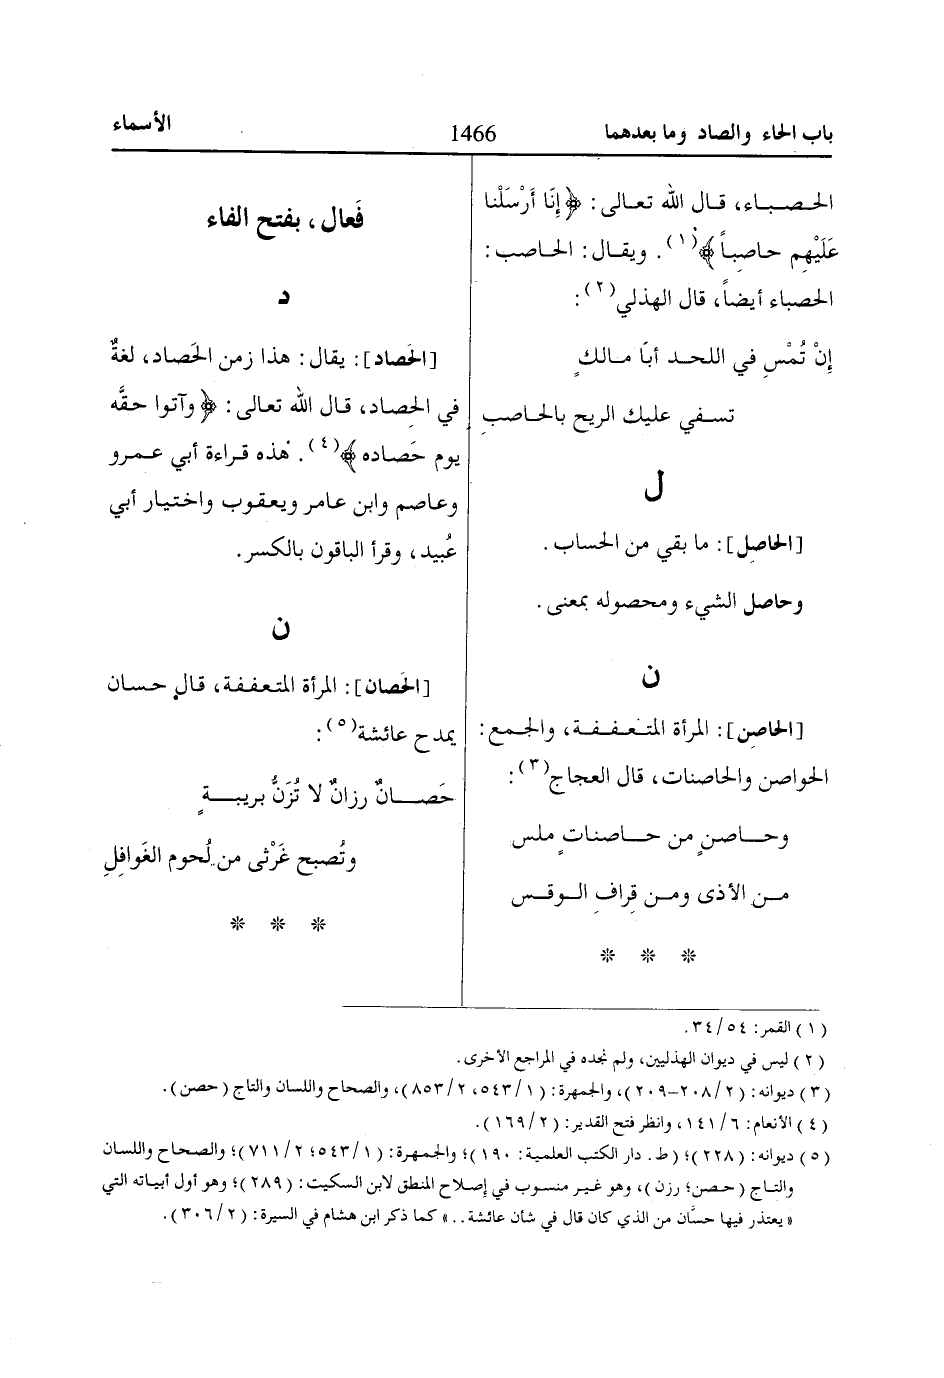 باب الحاء والصاد وما بعدهما
1466
الأسماء
الحصباء، قال الله تعالى: ﴿إِنَّا أَرْسَلْنا
عَلَيْهِم حاصباً﴾(١). ويقال: الحاصب:
الحصباء أيضاً، قال الهذلي(٢):
إِنْ تُمْسِ في اللحد أبَا مالكٍ
تسفي عليك الريح بالحاصبِ
ل
[الحاصِل]: ما بقي من الحساب.
وحاصل الشيء ومحصوله بمعنى.
ن
[الحاصِن]: المرأة المتعففة، والجمع:
الحواصن والحاصنات، قال العجاج(٣):
وحاصنٍ من حاصناتٍ ملس
من الأذى ومن قِرافِ الوقس
* * *
فَعال، بفتح الفاء
د
[الحَصاد]: يقال: هذا زمن الحَصاد، لغةٌ
في الحِصاد، قال الله تعالى: ﴿وآتوا حقَّه
يوم حَصاده﴾(٤). هذه قراءة أبي عمرو
وعاصم وابن عامر ويعقوب واختيار أبي
عُبيد، وقرأ الباقون بالكسر.
ن
[الحَصان]: المرأة المتعففة، قال حسان
يمدح عائشة(٥):
حَصانٌ رزانٌ لا تُزَنُّ بريبةٍ
وتُصبح غَرْثى من لُحوم الغَوافِلِ
* * *
(١) القمر: ٣٤/٥٤.
(٢) ليس في ديوان الهذليين، ولم نجده في المراجع الأخرى.
(٣) ديوانه: (٢٠٨/٢-٢٠٩)، والجمهرة: (٥٤٣/١، ٨٥٣/٢)، والصحاح واللسان والتاج (حصن).
(٤) الأنعام: ١٤١/٦، وانظر فتح القدير: (١٦٩/٢).
(٥) ديوانه: (٢٢٨)؛ (ط. دار الكتب العلمية: ١٩٠)؛ والجمهرة: (٥٤٣/١؛ ٧١١/٢)؛ والصحاح واللسان
والتاج (حصن؛ رزن)، وهو غير منسوب في إصلاح المنطق لابن السكيت: (٢٨٩)؛ وهو أول أبياته التي
« يعتذر فيها حسَّان من الذي كان قال في شأن عائشة..» كما ذكر ابن هشام في السيرة: (٣٠٦/٢).